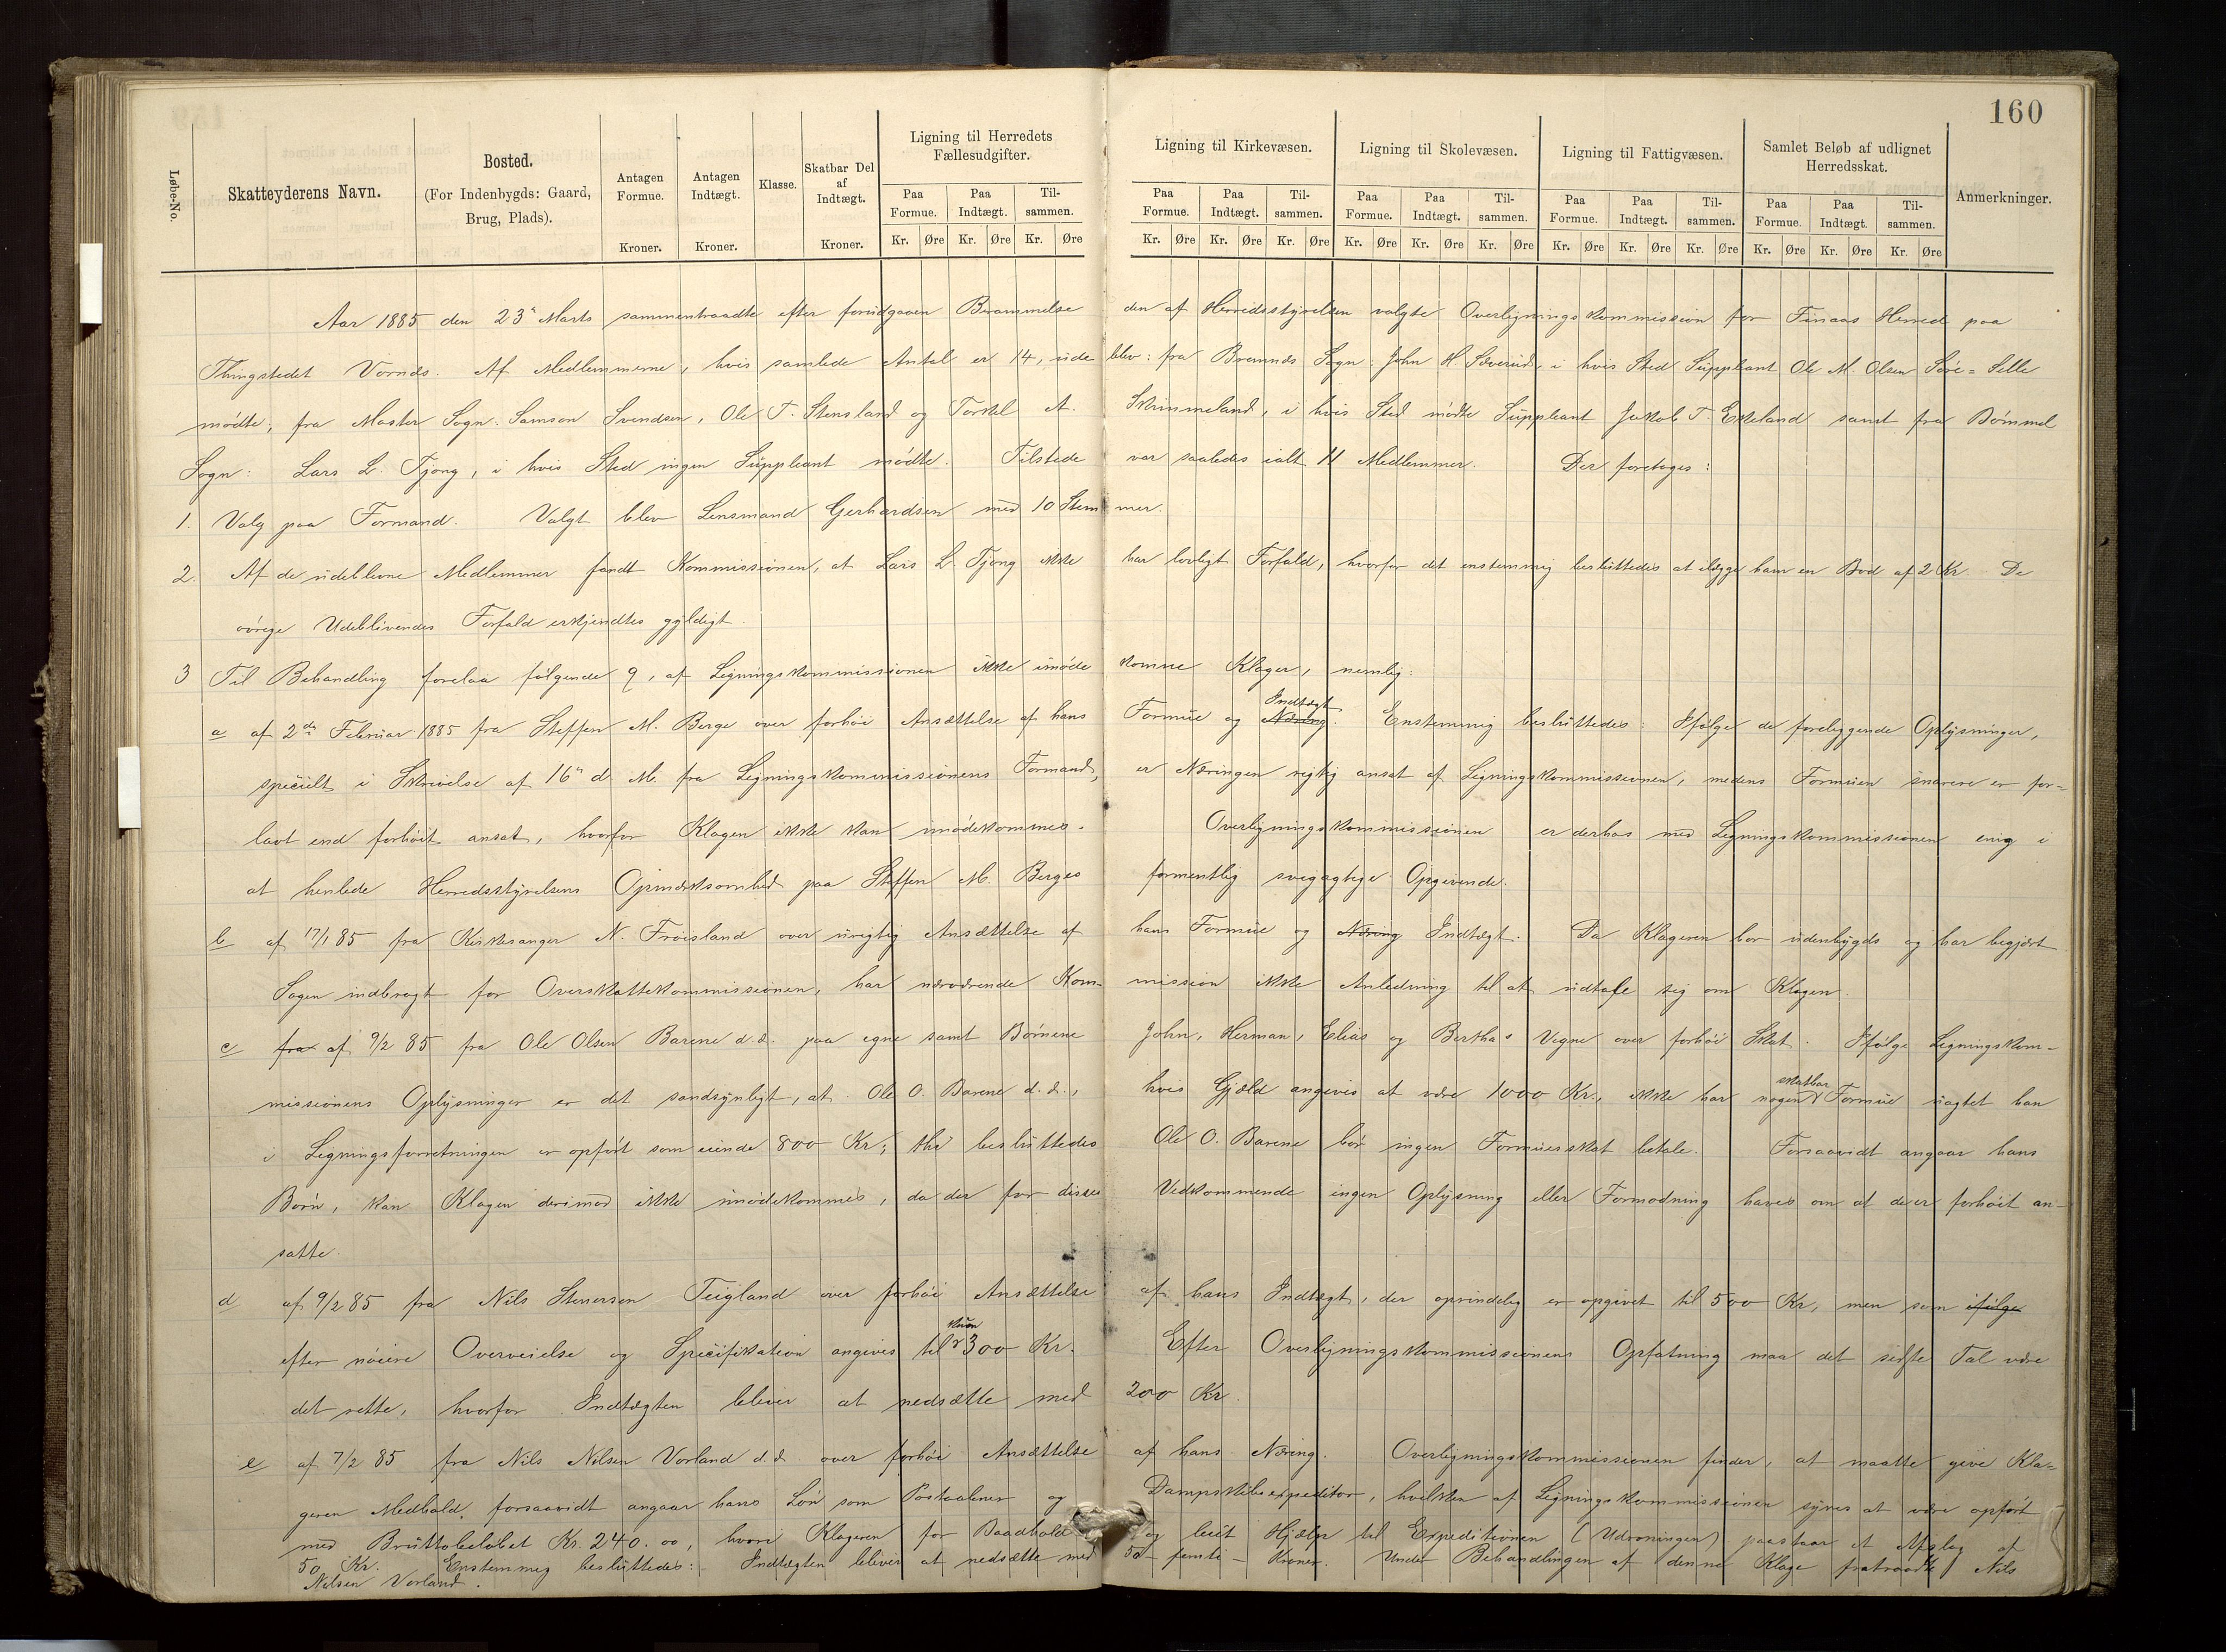 160
Løbe-No.
Skatteyderens Navn.
Bosted.
(For Indenbygds: Gaard,
Brug, Plads).
Antagen
Formue.
Kroner.
Antagen
Indtægt.
Kroner.
Klasse.
Skatbar Del
af
Indtægt.
Kroner.
Ligning til Herredets
Fællesudgifter.
Paa Formue. Paa Indtægt. Til- sammen.
Kr. Øre Kr. Øre Kr. Øre
Ligning til Kirkevæsen.
Paa Formue. Paa Indtægt. Til- sammen.
Kr. Øre Kr. Øre Kr. Øre
Ligning til Skolevæsen.
Paa Formue. Paa Indtægt. Til- sammen.
Kr. Øre Kr. Øre Kr. Øre
Ligning til Fattigvæsen.
Paa Formue. Paa Indtægt. Til- sammen.
Kr. Øre Kr. Øre Kr. Øre
Samlet Beløb af udlignet
Herredsskat.
Paa Formue. Paa Indtægt. Til- sammen.
Kr. Øre Kr. Øre Kr. Øre
Anmerkninger.
Aar 1885 den 23de Marts sammentraadte efter forudgaaen Berammelse den af Herredsstyrelsen valgte Overligningskommission for Finaas Herred paa
Thingstedet Vornæs. Af Medlemmerne, hvis samlede Antal er 14, udeblev: fra Bremnæs Sogn: John H. Sæverud, i hvis Sted Suppleant Ole M. Olsen Søre-Selle
mødte; fra Moster Sogn: Samson Svendsen, Ole T. Stensland og Torkel A. Skimmeland, i hvis Sted mødte Suppleant Jakob T. Ekeland samt fra Bømmel
Sogn: Lars L. Tjong, i hvis Sted ingen Suppleant mødte. Tilstede var saaledes ialt 11 Medlemmer. Der foretoges:
1. Valg paa Formand. Valgt blev Lensmand Gerhardsen med 10 Stemmer.
2. Af de udeblevne Medlemmer fandt Kommissionen, at Lars L. Tjong ikke har lovligt Forfald, hvorfor det enstemmig besluttedes at ilægge ham en Bod af 2 Kr. De
øvrige Udeblivendes Forfald erkjendtes gyldigt.
3 Til Behandling forelaa følgende 9, af Ligningskommissionen ikke imødekomne Klager, nemlig:
a af 2den Februar 1885 fra Steffen M. Berge over forhøi Ansættelse af hans Formue og Næring Indtægt. Enstemmig besluttedes: Ifølge de foreliggende Oplysninger,
specielt i Skrivelse af 16de d. M. fra Ligningskommissionens Formand, er Næringen rigtig ansat af Ligningskommissionen, medens Formuen snarere er for-
lavt end forhøit ansat, hvorfor Klagen ikke kan imødekommes. Overligningskommissionen er derhos med Ligningskommissionen enig i
at henlede Herredsstyrelsens Opmærksomhed paa Steffen M. Berges formentlig svigagtige Opgivende.
b af 17/1 85 fra Kirkesanger N. Frøisland over urigtig Ansættelse af hans Formue og Næring Indtægt. Da Klageren bor udenbygds og har begjært
Sagen indbragt for Overskattekommissionen, har nærværende Kommission ikke Anledning til at udtale sig om Klagen.
c fra af 9/2 85 fra Ole Olsen Barene d.æ. paa egne samt Børnene John, Herman, Elias og Berthas Vegne over forhøi Skat. Ifølge Ligningskom-
missionens Oplysninger er det sandsynligt, at Ole O. Barene d.æ., hvis Gjæld angives at være 1000 Kr., ikke har nogen skatbar Formue uagtet han
i Ligningsforretningen er opført som eiende 800 Kr; thi besluttedes Ole O. Barene bør ingen Formuesskat betale. Forsaavidt angaar hans
Børn, kan Klagen derimod ikke imødekommes, da der for disses Vedkommende ingen Oplysning eller Formodning haves om at de er forhøit an-
satte.
d af 9/2 85 fra Nils Stenersen Teigland over forhøi Ansættelse af hans Indtægt, der oprindelig er opgivet til 500 Kr, men som ifølge
efter nøiere Overveielse og Specifikation angives til kun 300 Kr. Efter Overligningskommissionens Opfatning maa det sidste Tal være
det rette, hvorfor Indtægten bliver at nedsætte med 200 Kr.
e af 7/2 85 fra Nils Nilsen Vorland d.æ. over forhøi Ansættelse af hans Næring. Overligningskommissionen finder, at maatte give Kla-
geren Medhold, forsaavidt angaar hans Løn som Postaabner og Dampskibsexpeditør, hvilken af Ligningskommissionen synes at være opført
med Bruttobeløbet Kr. 240.00, hvori Klageren for Baadhold og leiet Hjælp til Expeditionen (Udroningen) paastaar et Afslag af
50 Kr. Enstemmig besluttedes: Indtægten bliver at nedsætte med 50 - femti - Kroner. Under Behandlingen af denne Klage fratraadte Nils
Nilsen Vorland.